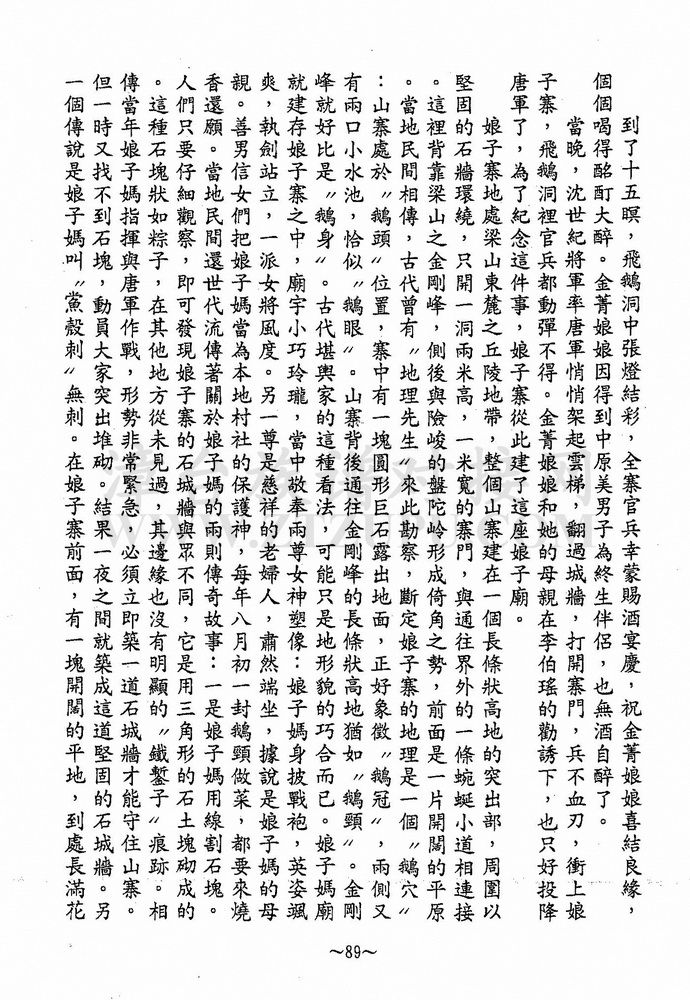 到了十五暝，飛鵝洞中張燈結彩，全寨官兵幸蒙賜酒宴慶，祝金菁娘娘喜結良緣，
個個喝得酩酊大醉。金菁娘娘因得到中原美男子為終生伴侶，也無酒自醉了。
當晚，沈世紀將軍率唐軍悄悄架起雲梯，翻過城牆，打開寨門，兵不血刃，衝上娘
子寨，飛鵝洞裡官兵都動彈不得。金菁娘娘和她的母親在李伯瑤的勸誘下，也只好投降
唐軍了，為了紀念這件事，娘子寨從此建了這座娘子廟。
娘子寨地處梁山東麓之丘陵地帶，整個山寨建在一個長條狀高地的突出部，周圍以
堅固的石牆環繞，只開一洞兩米高，一米寬的寨門，與通往界外的一條蜿蜒小道相連接
。這裡背靠梁山之金剛峰，側後與險峻的盤陀岭形成倚角之勢，前面是一片開闊的平原
。當地民間相傳，古代曾有〝地理先生〞來此勘察，斷定娘子寨的地理是一個〝鵝穴〞
：山寨處於〝鵝頭〞位置，寨中有一塊圓形巨石露出地面，正好象徵〝鵝冠〞，兩側又
有兩口小水池，恰似〝鵝眼〞。山寨背後通往金剛峰的長條狀高地猶如〝鵝頸〞。金剛
峰就好比是〝鵝身〞。古代堪輿家的這種看法　可能只是地形貌的巧合而已。娘子媽廟
就建存娘子寨之中，廟宇小巧玲瓏，當中敬奉兩尊女神塑像：娘子媽身披戰袍，英姿颯
爽，執劍站立，一派女將風度。另一尊是慈祥的老婦人，肅然端坐，據說是娘子媽的母
親。善男信女們把娘子媽當為本地村社的保護神，每年八月初一封鵝頸做菜，都要來燒
香還願。當地民間還世代流傳著關於娘子媽的兩則傳奇故事：一是娘子媽用線割石塊。
人們只要仔細觀察，即可發現娘子寨的石城牆與眾不同，它是用三角形的石土塊砌成的
。這種石塊狀如粽子，在其他地方從未見過，其邊緣也沒有明顯的〝鐵鏨子〞痕跡。相
傳當年娘子媽指揮與唐軍作戰，形勢非常緊急，必須立即築一道石城牆才能守住山寨。
但一時又找不到石塊，動員大家突出堆砌。結果一夜之間就築成這道堅固的石城牆。另
一個傳說是娘子媽叫〝黨殼刺〞無刺。在娘子寨前面，有一塊開闊的平地，到處長滿花
～89～